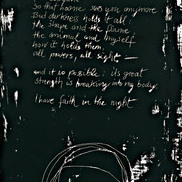 So that home sees you anymore
But darkness holds it all
the shape and the flame
the animal and myself
how it holds them,
all powers, all sight —
and it is possible: its great
strength is breaking into my body.
I have faith in the night